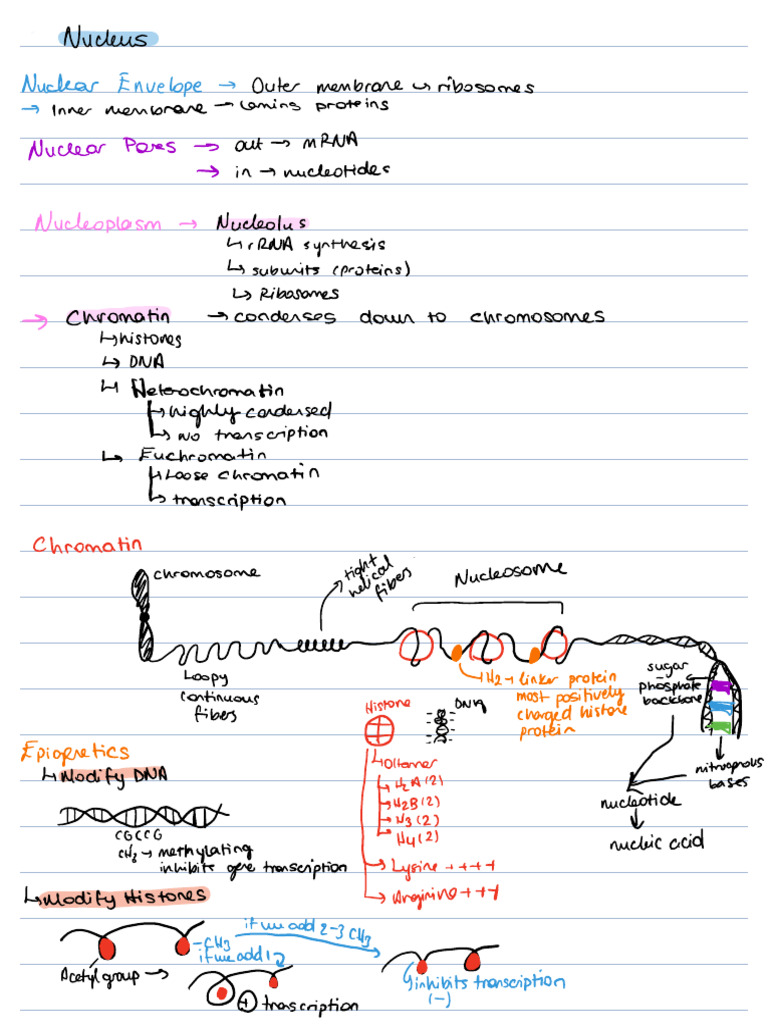 Nucleus
Nuclear Envelope → Outer membrane ↳ ribosomes
→ Inner membrane → Lamins proteins
Nuclear Pores → out → mRNA
→ in → nucleotides
Nucleoplasm → Nucleolus
↳ rRNA synthesis
↳ subunits (proteins)
↳ Ribosomes
→ Chromatin → condenses down to chromosomes
↳ histones
↳ DNA
↳ Heterochromatin
↳ highly condensed
↳ no transcription
↳ Euchromatin
↳ Loose chromatin
↳ transcription
Chromatin
chromosome
tight
helical
fibers
Nucleosome
Loopy
continuous
fibers
H2 → linker protein
most positively
charged histone
protein
sugar
phosphate
backbone
nitrogenous
bases
nucleotide
nucleic acid
Histone
DNA
H2A (2)
H2B (2)
H3 (2)
H4 (2)
Lysine ++++
Arginine +++
↳ Modify DNA
CGCCG
methylating
inhibits gene transcription
↳ Modify Histones
Acetyl group →
-CH3
if we add 1
if we add 2-3 CH3
+ transcription
↳ inhibits transcription
(-)